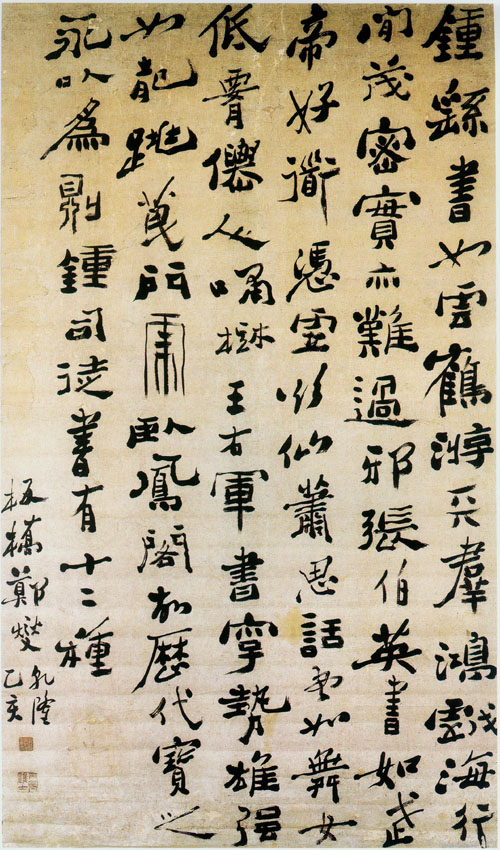 鍾繇書如雲鶴游天羣鴻戲海行
間茂密實亦難過邪張伯英書如武
帝好道憑虛欲仙蕭思話書如舞女
低腰僊人嘯樹王右軍書字勢雄强
如龍跳門虎臥鳳閣故歷代寶之
永以爲則鍾司徒書有十二種
板橋鄭燮
乾隆乙亥